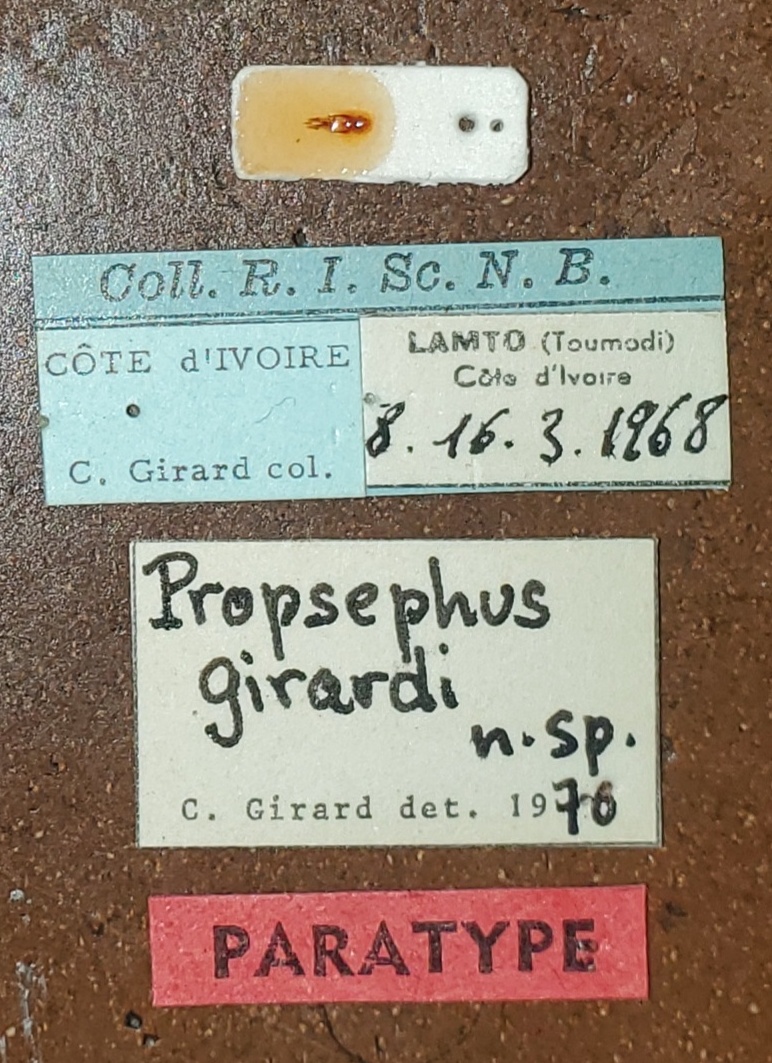 Coll. R. I. Sc. N. B.
CÔTE d'IVOIRE
C. Girard col.
LAMTO (Toumodi)
Côte d'Ivoire
8. 16. 3. 1968
Propsephus
girardi
n. sp.
C. Girard det. 1970
PARATYPE